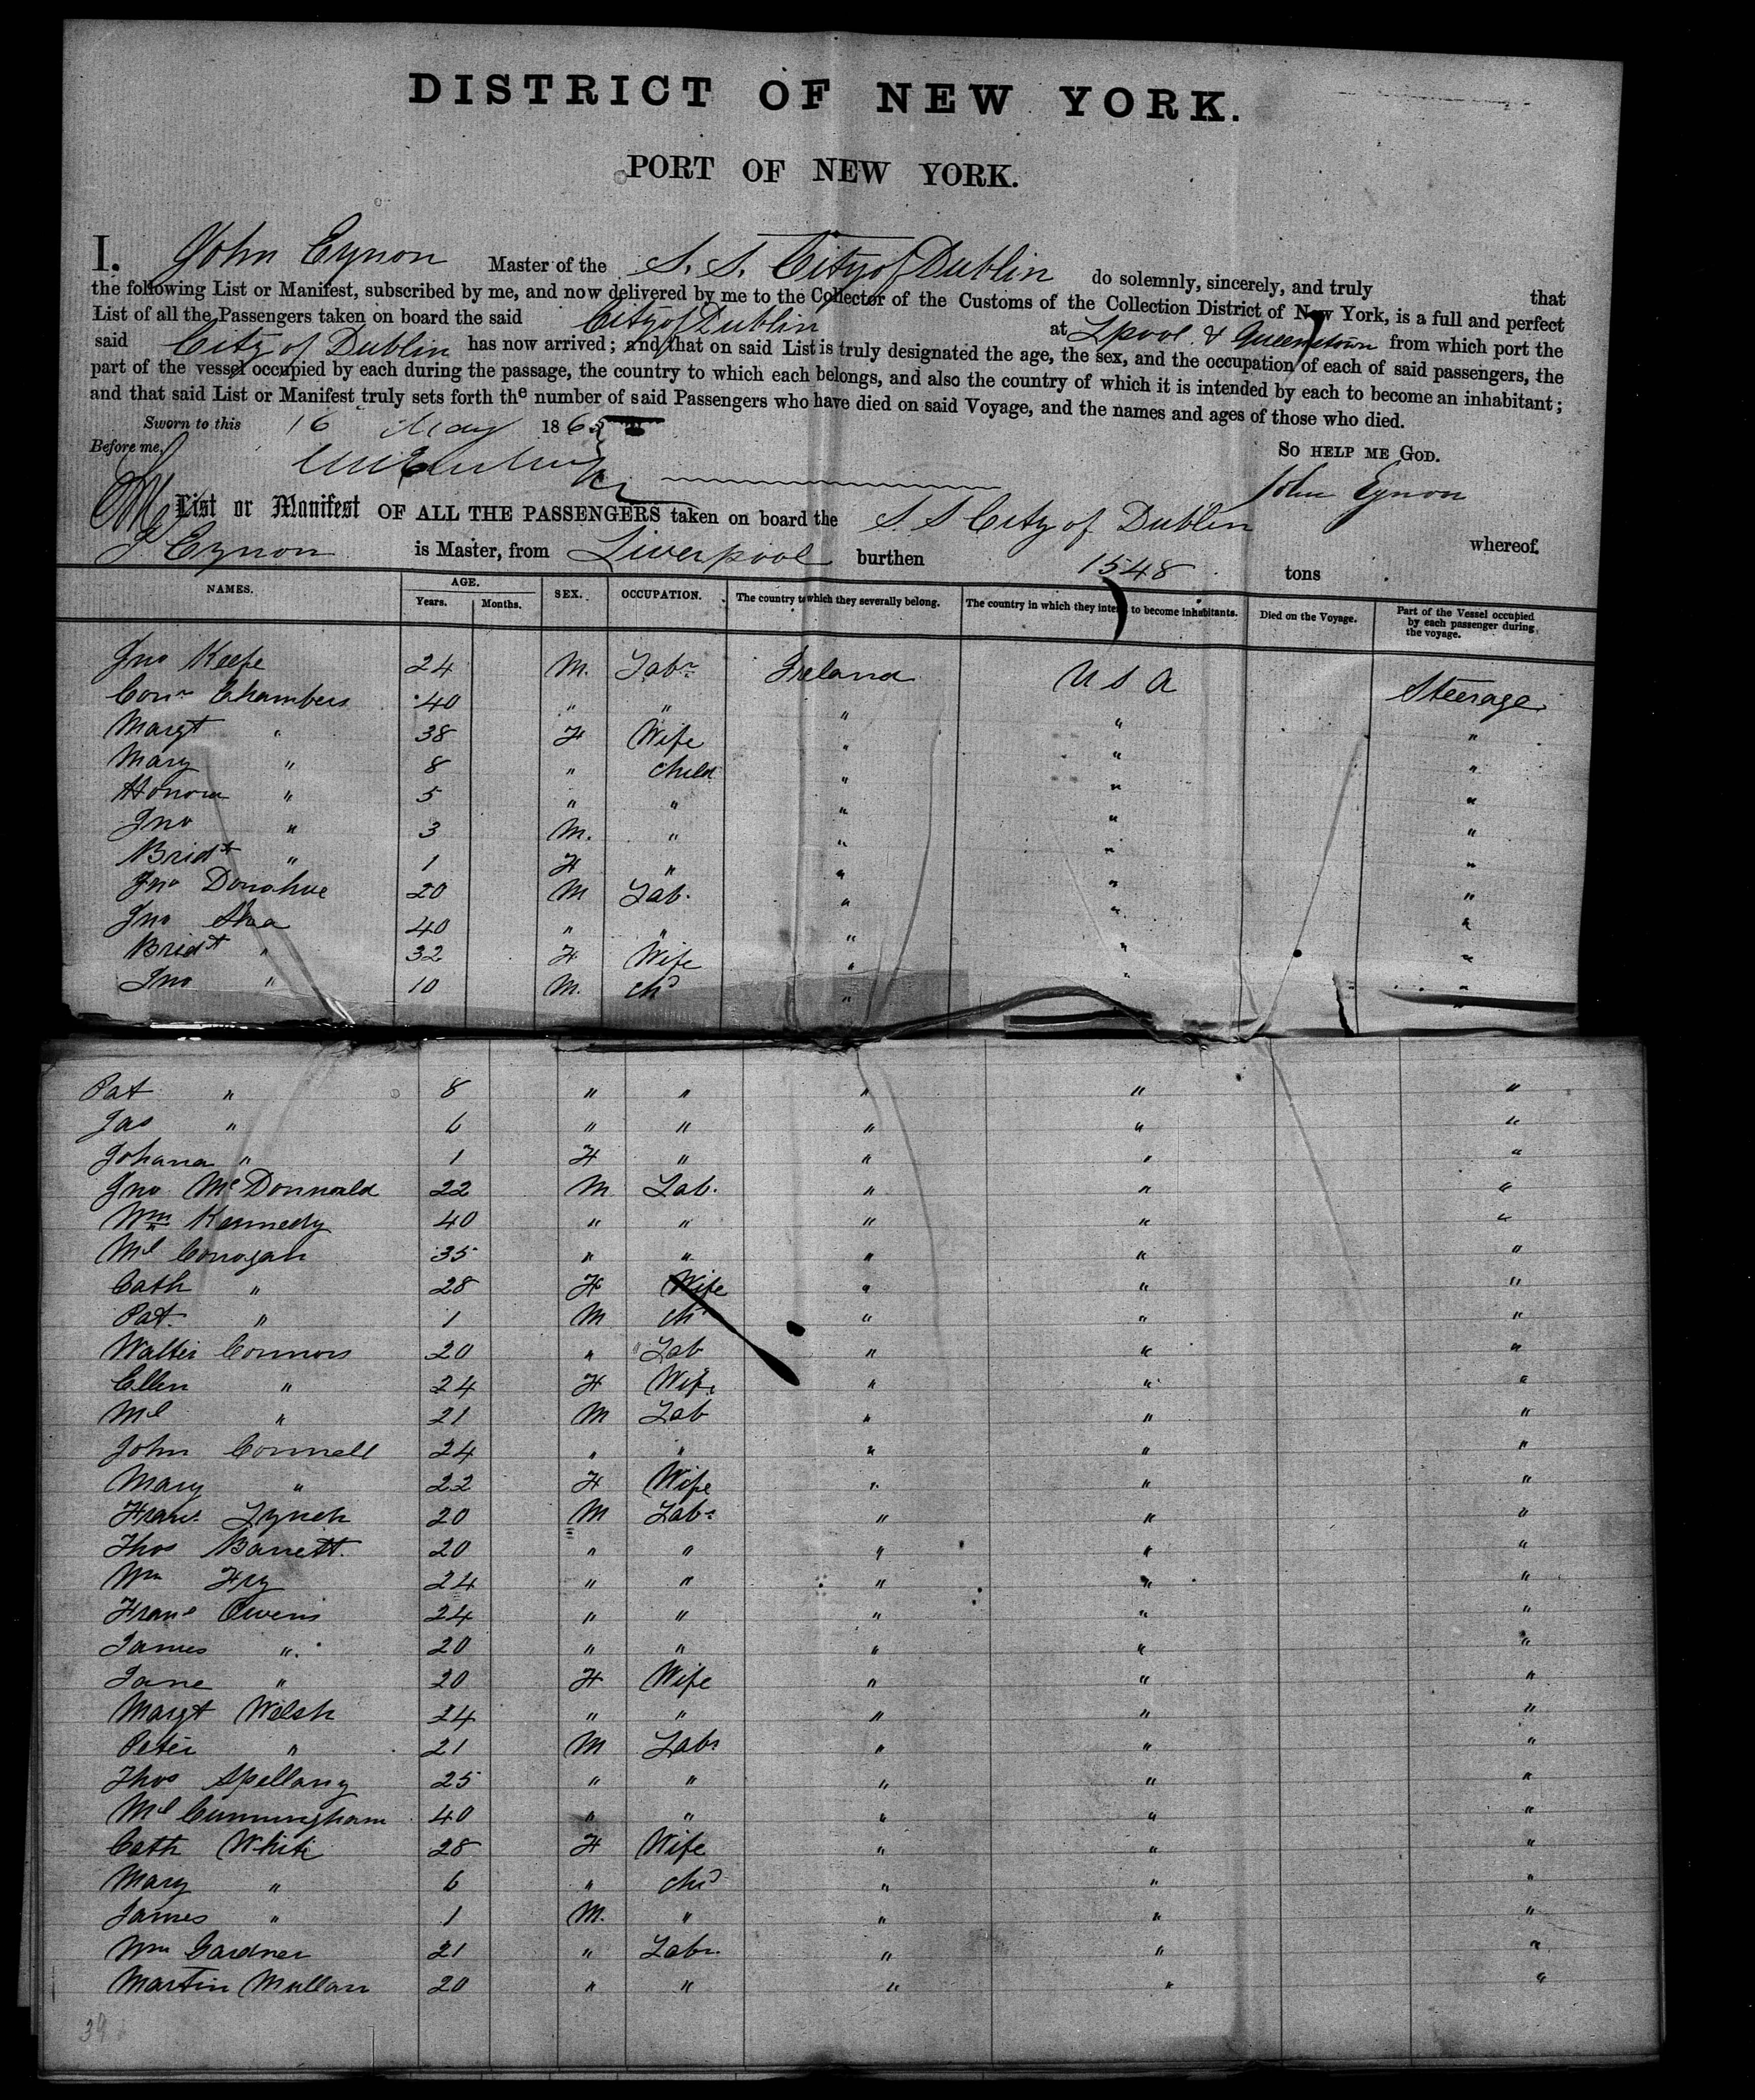 DISTRICT OF NEW YORK.
PORT OF NEW YORK.
I. John Eynon Master of the S. S. City of Dublin do solemnly, sincerely, and truly that
the following List or Manifest, subscribed by me, and now delivered by me to the Collector of the Customs of the Collection District of New York, is a full and perfect
List of all the Passengers taken on board the said City of Dublin at Lpool. & Queenstown from which port the
said City of Dublin has now arrived; and that on said List is truly designated the age, the sex, and the occupation of each of said passengers, the
part of the vessel occupied by each during the passage, the country to which each belongs, and also the country of which it is intended by each to become an inhabitant;
and that said List or Manifest truly sets forth the number of said Passengers who have died on said Voyage, and the names and ages of those who died.
Sworn to this 16 May 1865
So HELP ME GOD.
Before me,
John Eynon
List or Manifest OF ALL THE PASSENGERS taken on board the S S City of Dublin whereof
J Eynon is Master, from Liverpool burthen 1548 tons
NAMES. AGE. Years. Months. SEX. OCCUPATION. The country to which they severally belong. The country in which they intend to become inhabitants. Died on the Voyage. Part of the Vessel occupied by each passenger during the voyage.
Jno Keefe 24 M. Labr Ireland U S A Steerage
Conr Chambers 40 " " " " "
Margt " 38 F Wife " " "
Mary " 8 " Child " " "
Honora " 5 " " " " "
Jno " 3 M. " " " "
Bridt " 1 F " " " "
Jno Donahue 20 M Lab. " " "
Jno Shea 40 " " " " "
Bridt " 32 F Wife " " "
Jno " 10 M. Chd " " "
Pat " 8 " " " " "
Jas " 6 " " " " "
Johana " 1 F " " " "
Jno McDonnald 22 M Lab. " " "
Wm Kennedy 40 " " " " "
Ml Conogan 35 " " " " "
Cath " 28 F Wife " " "
Pat. " 1 M Ch " " "
Walter Connors 20 " Lab " " "
Ellen " 24 F Wife " " "
Ml " 21 M Lab " " "
John Connell 24 " " " " "
Mary " 22 F Wife " " "
Frans Lynch 20 M Labr " " "
Thos Barrett. 20 " " " " "
Wm Fry 24 " " " " "
Frans Owens 24 " " " " "
James " 20 " " " " "
Jane " 20 F Wife " " "
Margt Welsh 24 " " " " "
Peter " 21 M Labr " " "
Thos Spellany 25 " " " " "
Ml Cunningham 40 " " " " "
Cath White 28 F Wife " " "
Mary " 6 " Chd " " "
James " 1 M. " " " "
Wm Gardner 21 " Labr. " " "
Martin Mullan 20 " " " " "
39